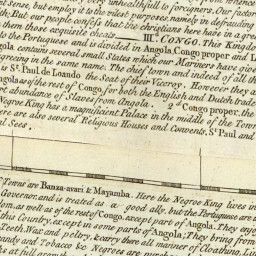 very unhealthfull to foreigners, our factor
nd Sense, but employ it to the vilest purposes, namely in defrauding,
ith. But our people confess that the christians here have in a gr
them those acquired cheats. III. CONGO. This King de
to the Portuguese and is divided in Angola Congo proper and
gola contain several small States which our Mariners have given
agreeing in the same name. The chief town and indeed of all th
St. Paul de Loando the Seat of their Viceroy. However they a
Angola as of the rest of Congo, for both the English and Dutch trade
at abundance of Slaves from Angola. 2d Congo proper, the
Negroe King has a magnificent Palace in the middle of the Town
ere are also several Religious Houses and Convents, St. Paul and
al Sees.
f Towns are Banza-avari & Mayamba. Here the Negroe King lives in
Governor, and is treated as a good ally, but the Portuguese are
dom, as well as of the rest of Congo, except part of Angola. They enjoy
this Country, except in some parts of Angola; They bring from
Teeth, Wax and peltry, & carry there all manner of Cloathing, Li
andy and Tobacco & Negroes are purch
at full growth